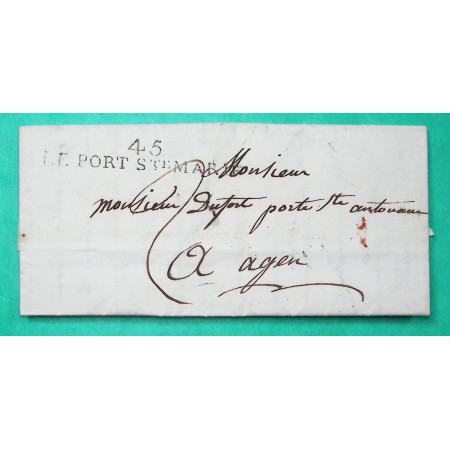 45
LE PORT STE MARIE
Monsieur
monsieur Dufort porte Ste antoine
a agen